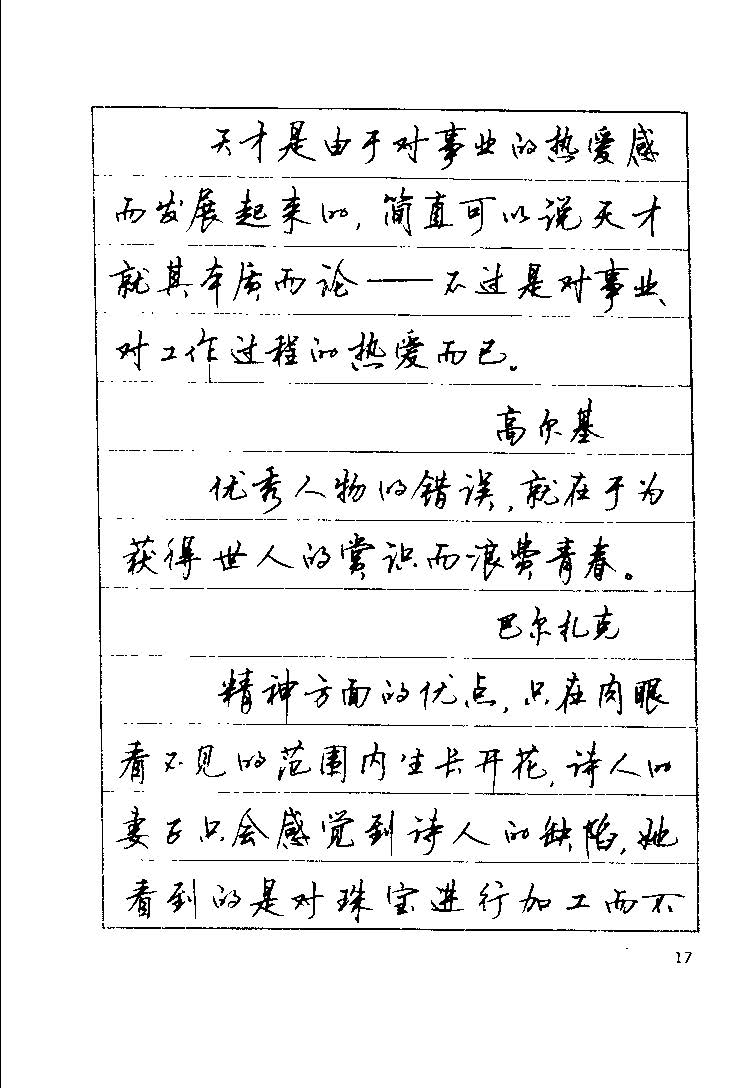 天才是由于对事业的热爱感
而发展起来的,简直可以说天才
就其本质而论——不过是对事业、
对工作过程的热爱而已。
高尔基
优秀人物的错误,就在于为
获得世人的赏识而浪费青春。
巴尔扎克
精神方面的优点,只在肉眼
看不见的范围内生长开花,诗人的
妻子只会感觉到诗人的缺陷,她
看到的是对珠宝进行加工而不
17